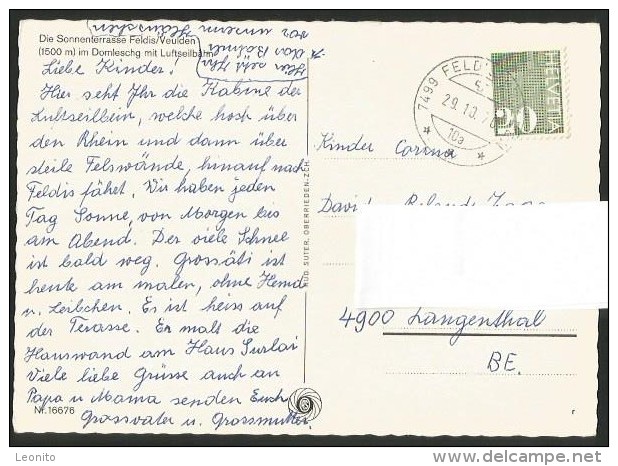 Die Sonnenterrasse Feldis/Veulden
(1500 m) im Domleschg mit Luftseilbahn
Hier seht Ihr
die Bahn
vor unserem
Häuschen
Liebe Kinder!
Hier seht Ihr die Kabine der
Luftseilbein, welche hoch über
den Rhein und dann über
steile Felswände, hinauf nach
Feldis fährt. Wir haben jeden
Tag Sonne, von Morgen bis
am Abend. Der viele Schnee
ist bald weg. Grossäti ist
heute am malen, ohne Hemd
u. Leibchen. Es ist heiss auf
der Terasse. Er malt die
Hauswand am Haus Surlai
Viele liebe Grüsse auch an
Papa u Mama senden Euch
Grossvater u. Grossmutter.
Nr. 16676
RUD. SUTER, OBERRIEDEN-ZCH.
7499 FELDIS
29.10.70
10a
HELVETIA
20
Kinder Corina
David Roland
4900 Langenthal
BE.
r
Leonito